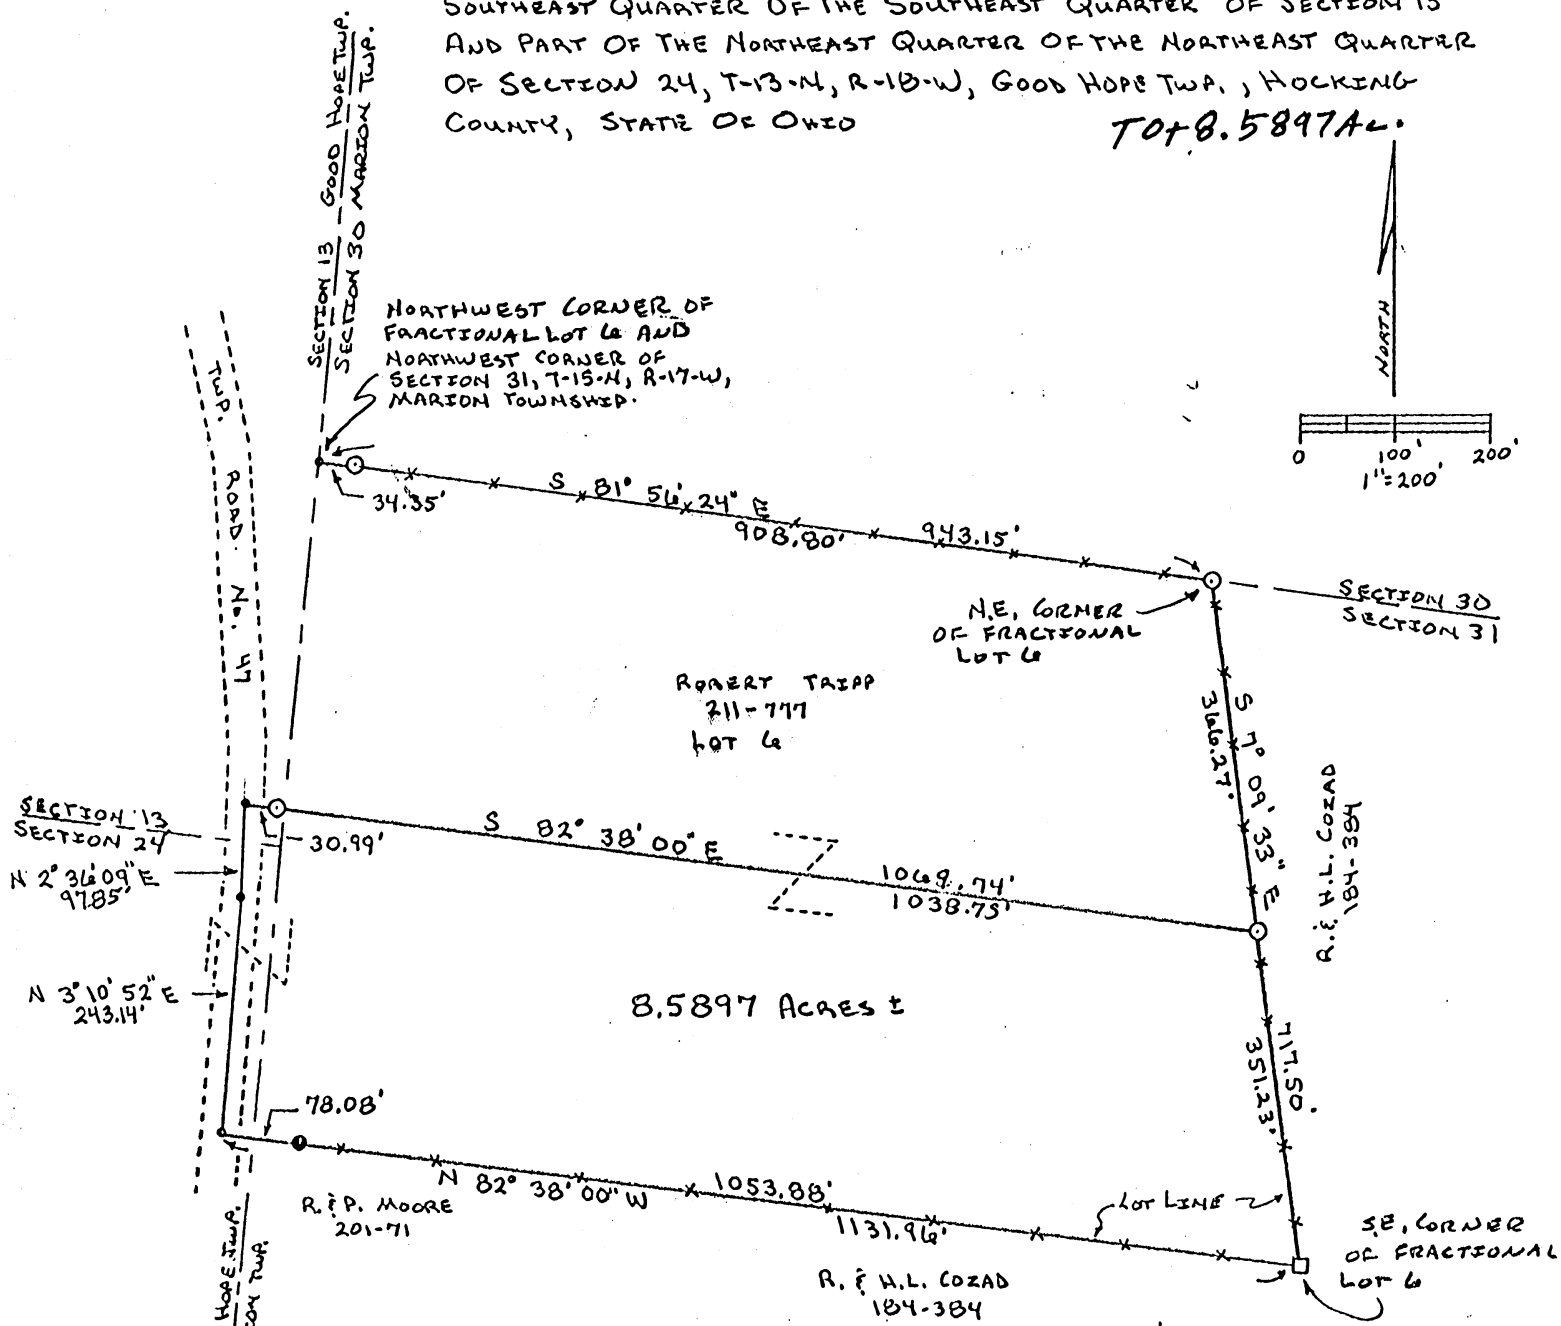 SOUTHEAST QUARTER OF THE SOUTHEAST QUARTER OF SECTION 13
AND PART OF THE NORTHEAST QUARTER OF THE NORTHEAST QUARTER
OF SECTION 24, T-13-N, R-18-W, GOOD HOPE TWP., HOCKING
COUNTY, STATE OF OHIO
TOT 8.5897 Ac.
SECTION 13 GOOD HOPE TWP.
SECTION 30 MARION TWP.
NORTHWEST CORNER OF
FRACTIONAL LOT 6 AND
NORTHWEST CORNER OF
SECTION 31, T-15-N, R-17-W,
MARION TOWNSHIP.
NORTH
0 100' 200'
1"=200'
TWP. ROAD No. 47
34.35'
S 81° 56' 24" E
908.80' 943.15'
N.E. CORNER
OF FRACTIONAL
LOT 6
SECTION 30
SECTION 31
ROBERT TRIPP
211-777
LOT 6
S 7° 09' 33" E
366.27'
R. & H.L. COZAD
184-384
SECTION 13
SECTION 24
30.99'
S 82° 38' 00" E
1069.74'
1038.75'
N 2° 36' 09" E
97.85'
N 3° 10' 52" E
243.14'
8.5897 ACRES ±
717.50'
351.23'
78.08'
N 82° 38' 00" W
1053.88'
1131.96'
R. & P. MOORE
201-71
LOT LINE
S.E. CORNER
OF FRACTIONAL
LOT 6
R. & H.L. COZAD
184-384
HOPE TWP.
ION TWP.